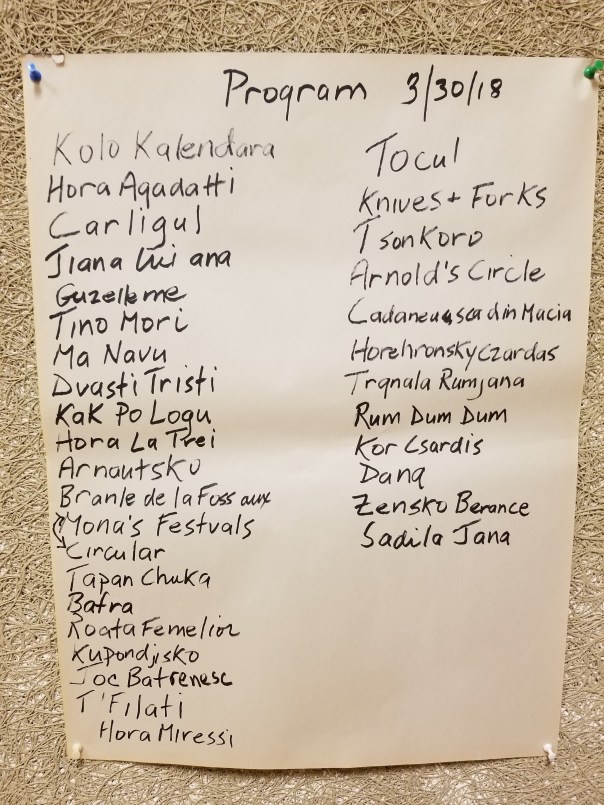 Program 3/30/18
Kolo Kalendara
Hora Agadatti
Carligul
Jiana lui ana
Guzelleme
Tino Mori
Ma Navu
Dvasti Tristi
Kak Po Logu
Hora La Trei
Arnautsko
Branle de la Fossaux
Mona's Festvals
Circular
Tapan Chuka
Batra
Roata Femelior
Kupondjisko
Joc Batrenesc
T'Filati
Hora Miressi
Tocul
Knives + Forks
Tsonkoro
Arnold's Circle
Cadaneuasca din Macia
Horehronsky Czardas
Trqnala Rumjana
Rum Dum Dum
Kor Csardis
Dana
Zensko Berance
Sadila Jana